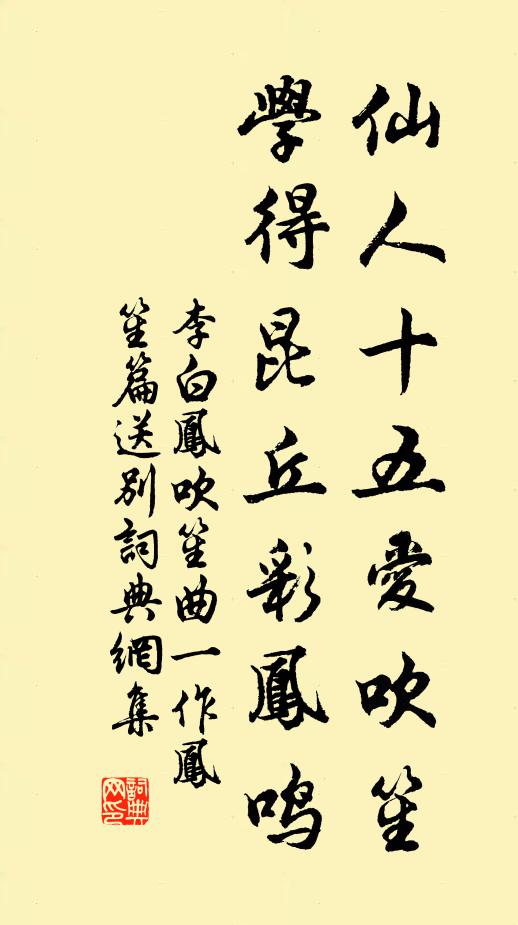 仙人十五愛吹笙
學得昆丘彩鳳鳴
李白鳳吹笙曲一作鳳
笙篇送別詞典網集
詞典
网印